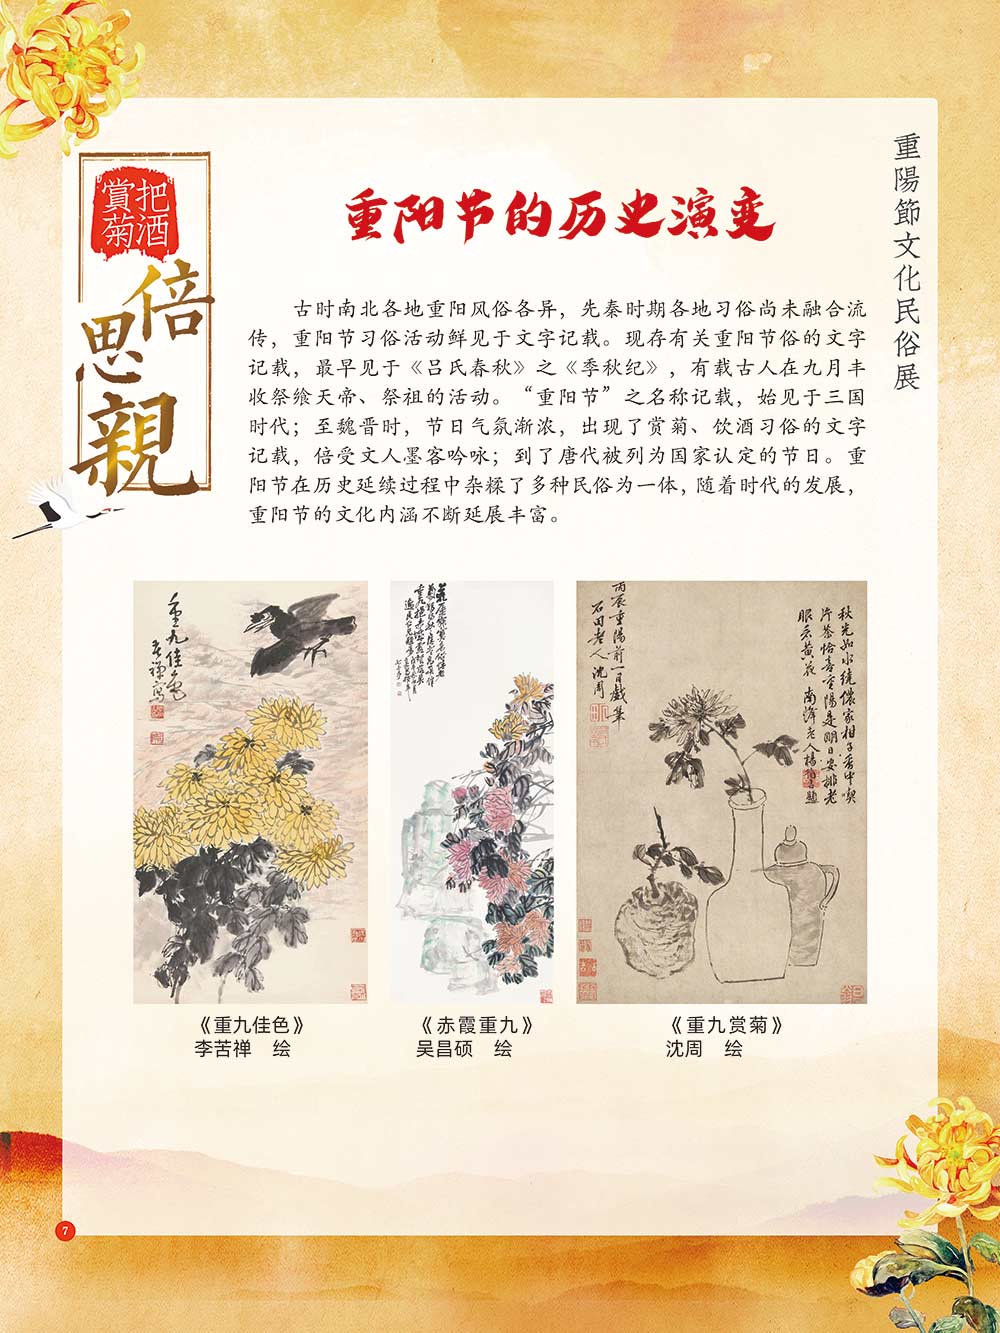 重陽節文化民俗展
把酒
賞菊
倍
思
親
重阳节的历史演变
古时南北各地重阳风俗各异，先秦时期各地习俗尚未融合流
传，重阳节习俗活动鲜见于文字记载。现存有关重阳节俗的文字
记载，最早见于《吕氏春秋》之《季秋纪》，有载古人在九月丰
收祭飨天帝、祭祖的活动。“重阳节”之名称记载，始见于三国
时代；至魏晋时，节日气氛渐浓，出现了赏菊、饮酒习俗的文字
记载，倍受文人墨客吟咏；到了唐代被列为国家认定的节日。重
阳节在历史延续过程中杂糅了多种民俗为一体，随着时代的发展，
重阳节的文化内涵不断延展丰富。
重九佳色
苦禅写
丙辰重陽前一日戲筆
石田老人沈周
《重九佳色》
李苦禅　绘
《赤霞重九》
吴昌硕　绘
《重九赏菊》
沈周　绘
7